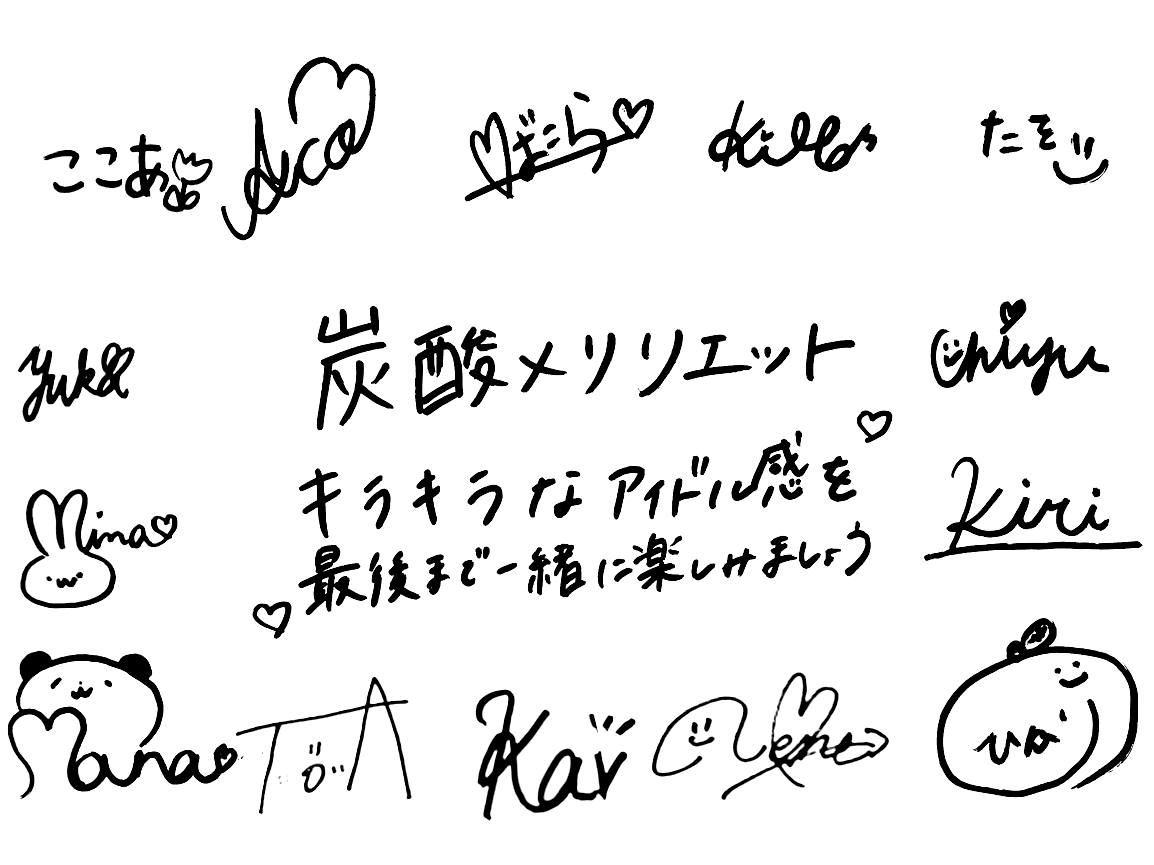 ここあ
Aco
ばにら
たそ
Yuka
炭酸メリリエット
Chiyu
キラキラなアイドル感を
最後まで一緒に楽しみましょう
Mina
Kiri
Mana